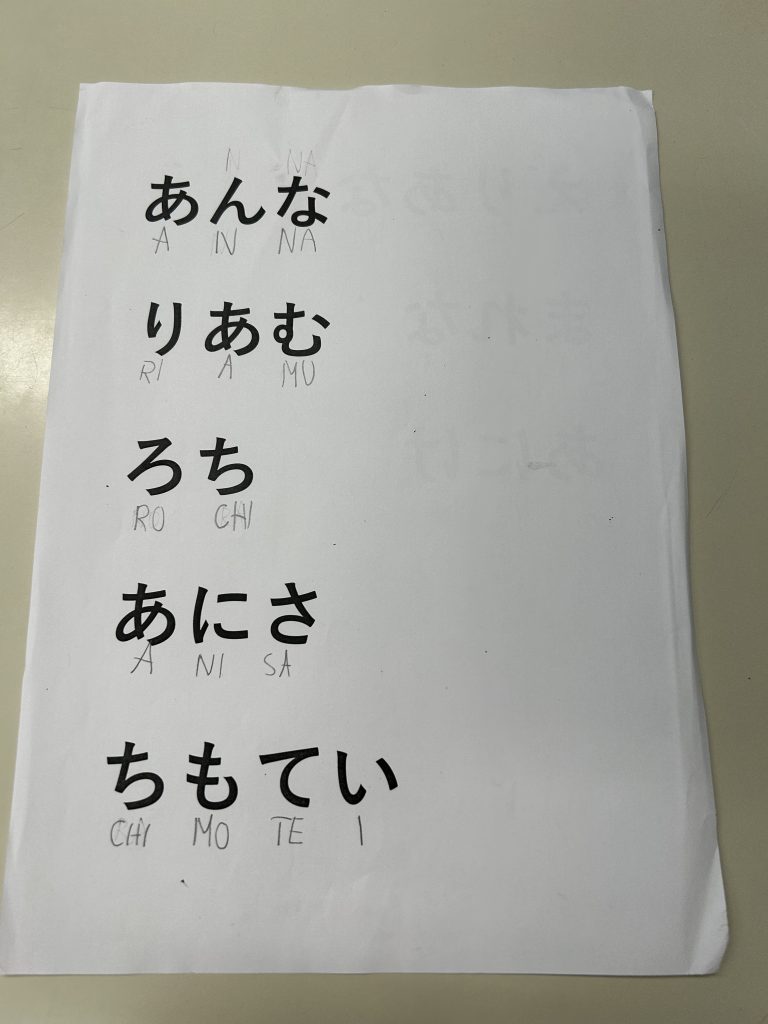 N NA
あんな
A N NA
りあむ
RI A MU
ろち
RO CHI
あにさ
A NI SA
ちもてい
CHI MO TE I